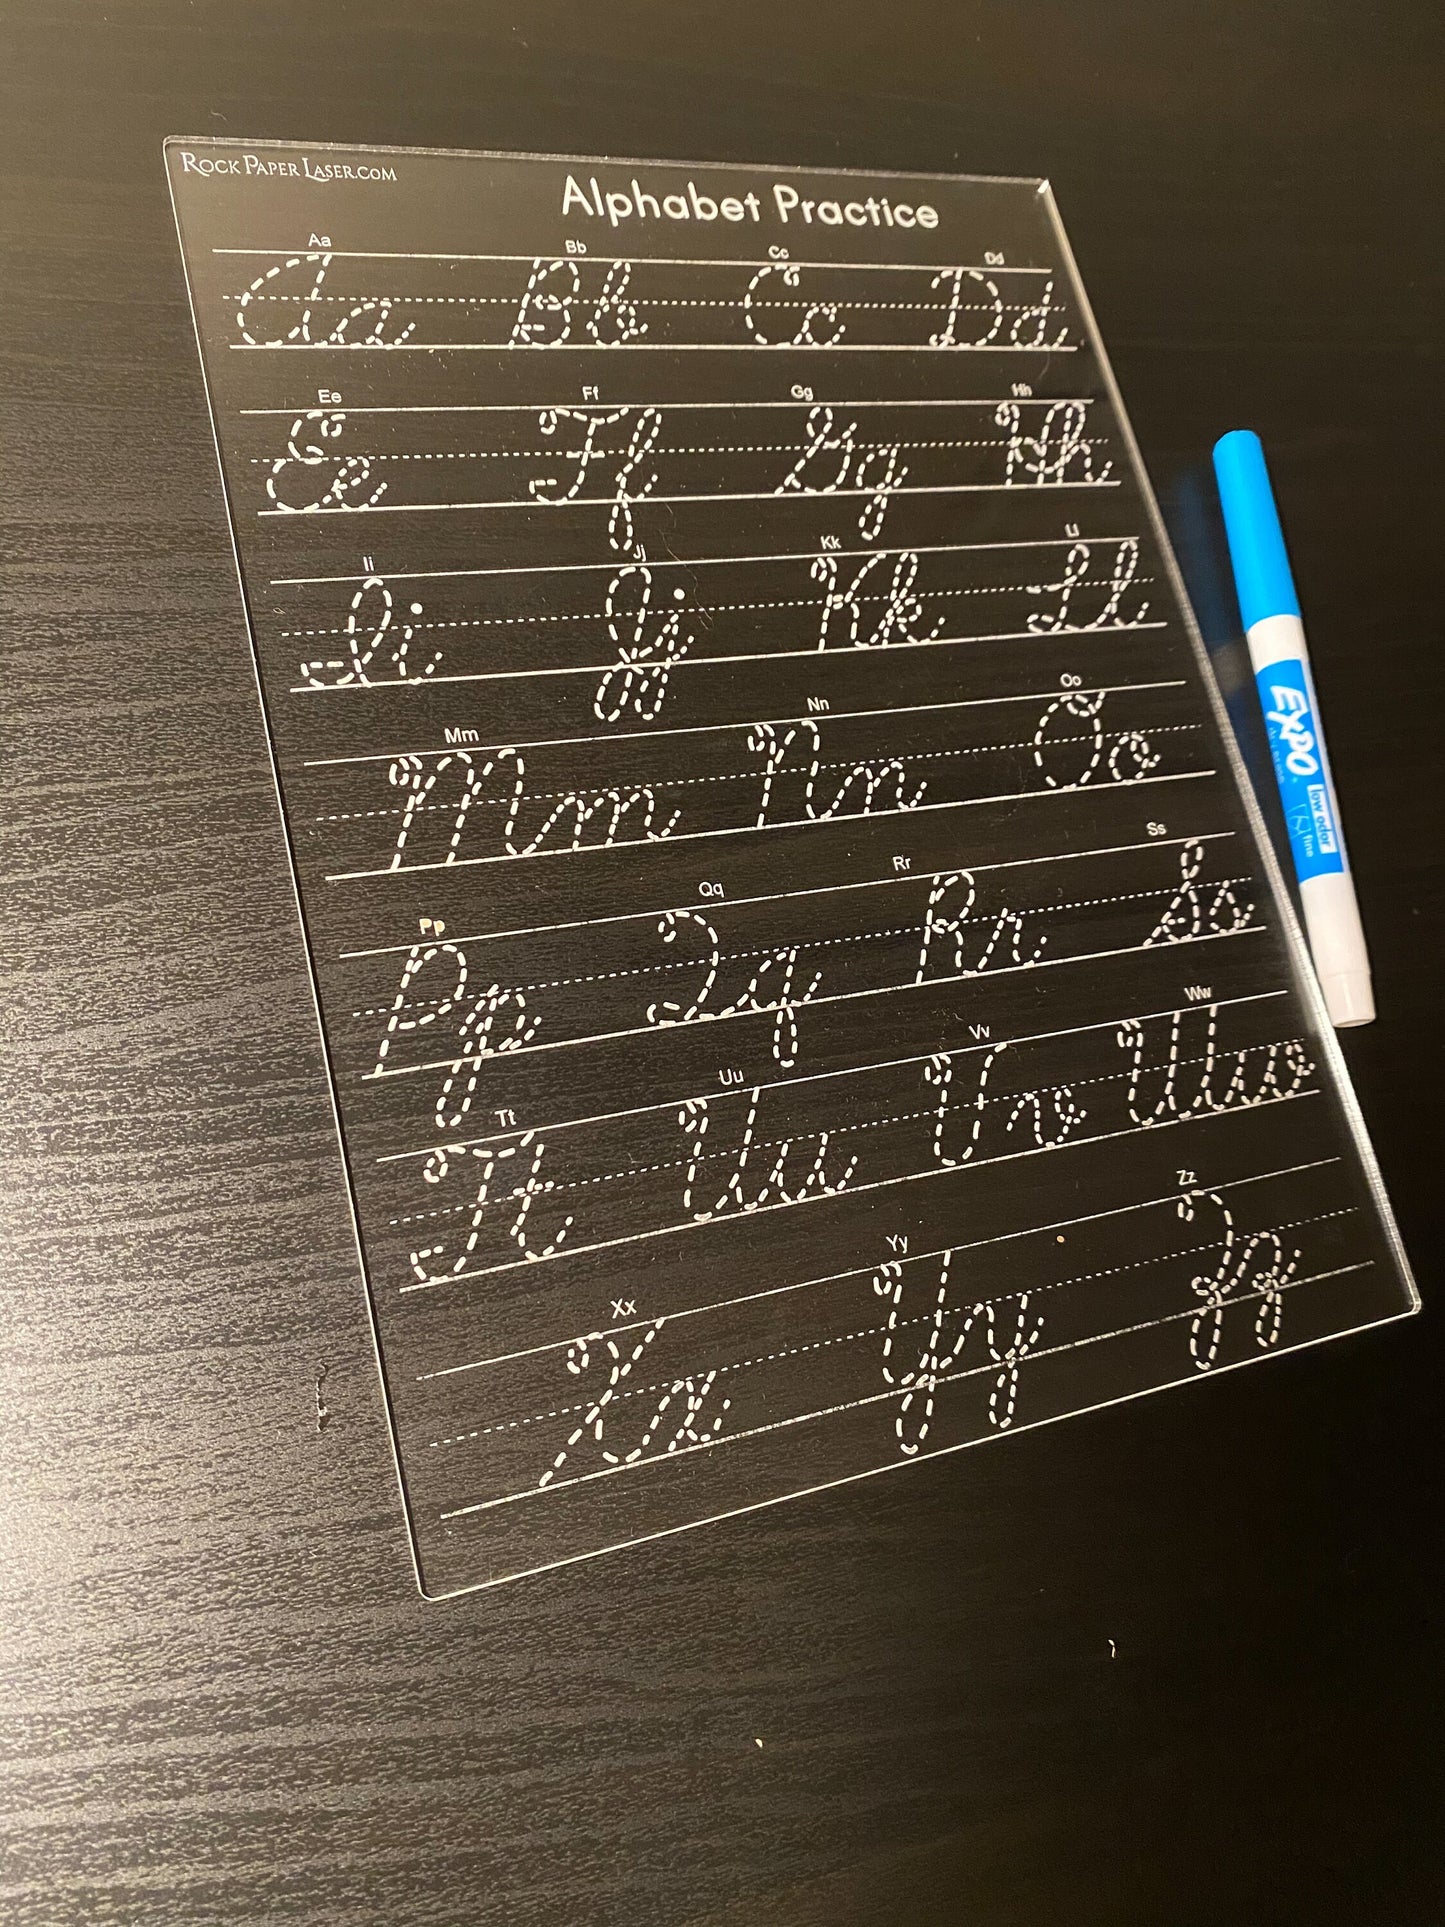 ROCK PAPER LASER.COM
Alphabet Practice
Aa Bb Cc Dd
Aa Bb Cc Dd
Ee Ff Gg Hh
Ee Ff Gg Hh
Ii Jj Kk Ll
Ii Jj Kk Ll
Mm Nn Oo
Mm Nn Oo
Pp Qq Rr Ss
Pp Qq Rr Ss
Tt Uu Vv Ww
Tt Uu Vv Ww
Xx Yy Zz
Xx Yy Zz
EXPO
low odor
fine